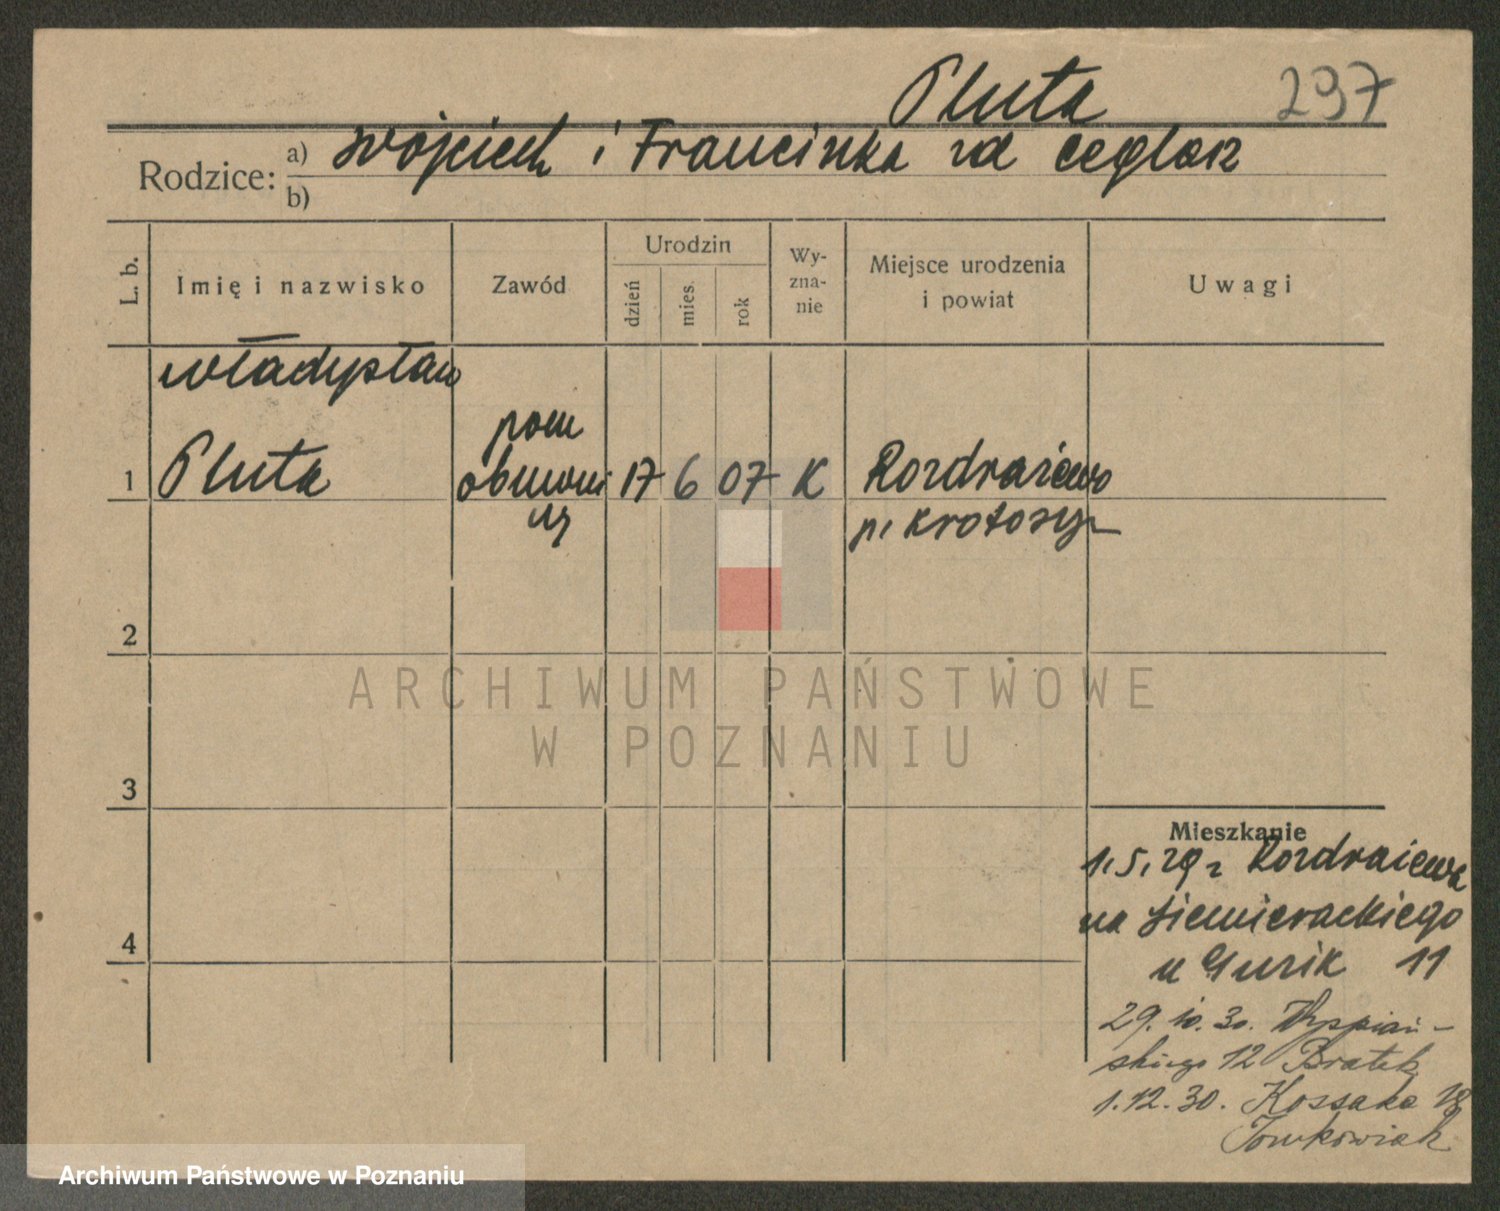 Pluta 297
Rodzice: a) Wojciech i Francinka zd Ceglarz
b)
L. b. Imię i nazwisko Zawód Urodzin dzień mies. rok Wy-zna-nie Miejsce urodzenia i powiat Uwagi
Władysław
pom
1 Pluta 17 6 07 K Rozdrażewo
p. Krotoszyn
2
ARCHIWUM PAŃSTWOWE
W POZNANIU
3
Mieszkanie
1.5.29 z Rozdrażewa
na Siemierackiego
u 11
4
29.10.30. Wyspiań-
skiego 12 Bratek
1.12.30. Kossaka 18
Archiwum Państwowe w Poznaniu